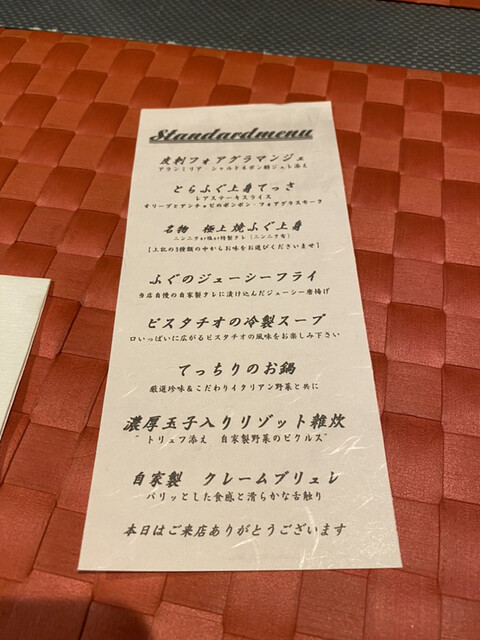 Standardmenu
皮刺フォアグラマンジェ
アランミリア・シャルドネポン酢ジュレ添え
とらふぐ上身てっさ
レアステーキスライス
オリーブとアンチョビのボンボン・フォアグラスモーク
名物 極上焼ふぐ上身
ニンニクor塩or特製タレ（ニンニク有）
【上記の3種類の中からお味をお選びくださいませ】
ふぐのジューシーフライ
当店自慢の自家製タレに漬け込んだジューシー唐揚げ
ピスタチオの冷製スープ
口いっぱいに広がるピスタチオの風味をお楽しみ下さい
てっちりのお鍋
厳選珍味＆こだわりイタリアン野菜と共に
濃厚玉子入りリゾット雑炊
"トリュフ添え 自家製野菜のピクルス"
自家製 クレームブリュレ
パリッとした食感と滑らかな舌触り
本日はご来店ありがとうございます